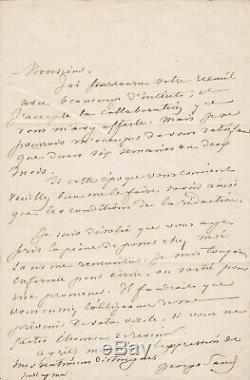 Monsieur,
J'ai parcouru votre recueil
avec beaucoup d'intérêt, et
j'accepte la collaboration que
vous m'avez offerte. Mais je ne
pourrais m'occuper de vous satisfaire
que dans six semaines ou deux
mois.
Si cette époque vous convient
veuillez bien me le faire savoir ainsi
que les conditions de la rédaction.
Je suis désolée que vous ayez
pris la peine de passer chez moi
sans me rencontrer. Je suis toujours
enfermée pour écrire, ou sortie pour
me promener. Il faudrait que
vous eussiez l'obligeance de me
prévenir de votre visite. Si vous me
faites l'honneur de revenir
agréez Mr l'expression de
mes sentiments distingués
George Sand